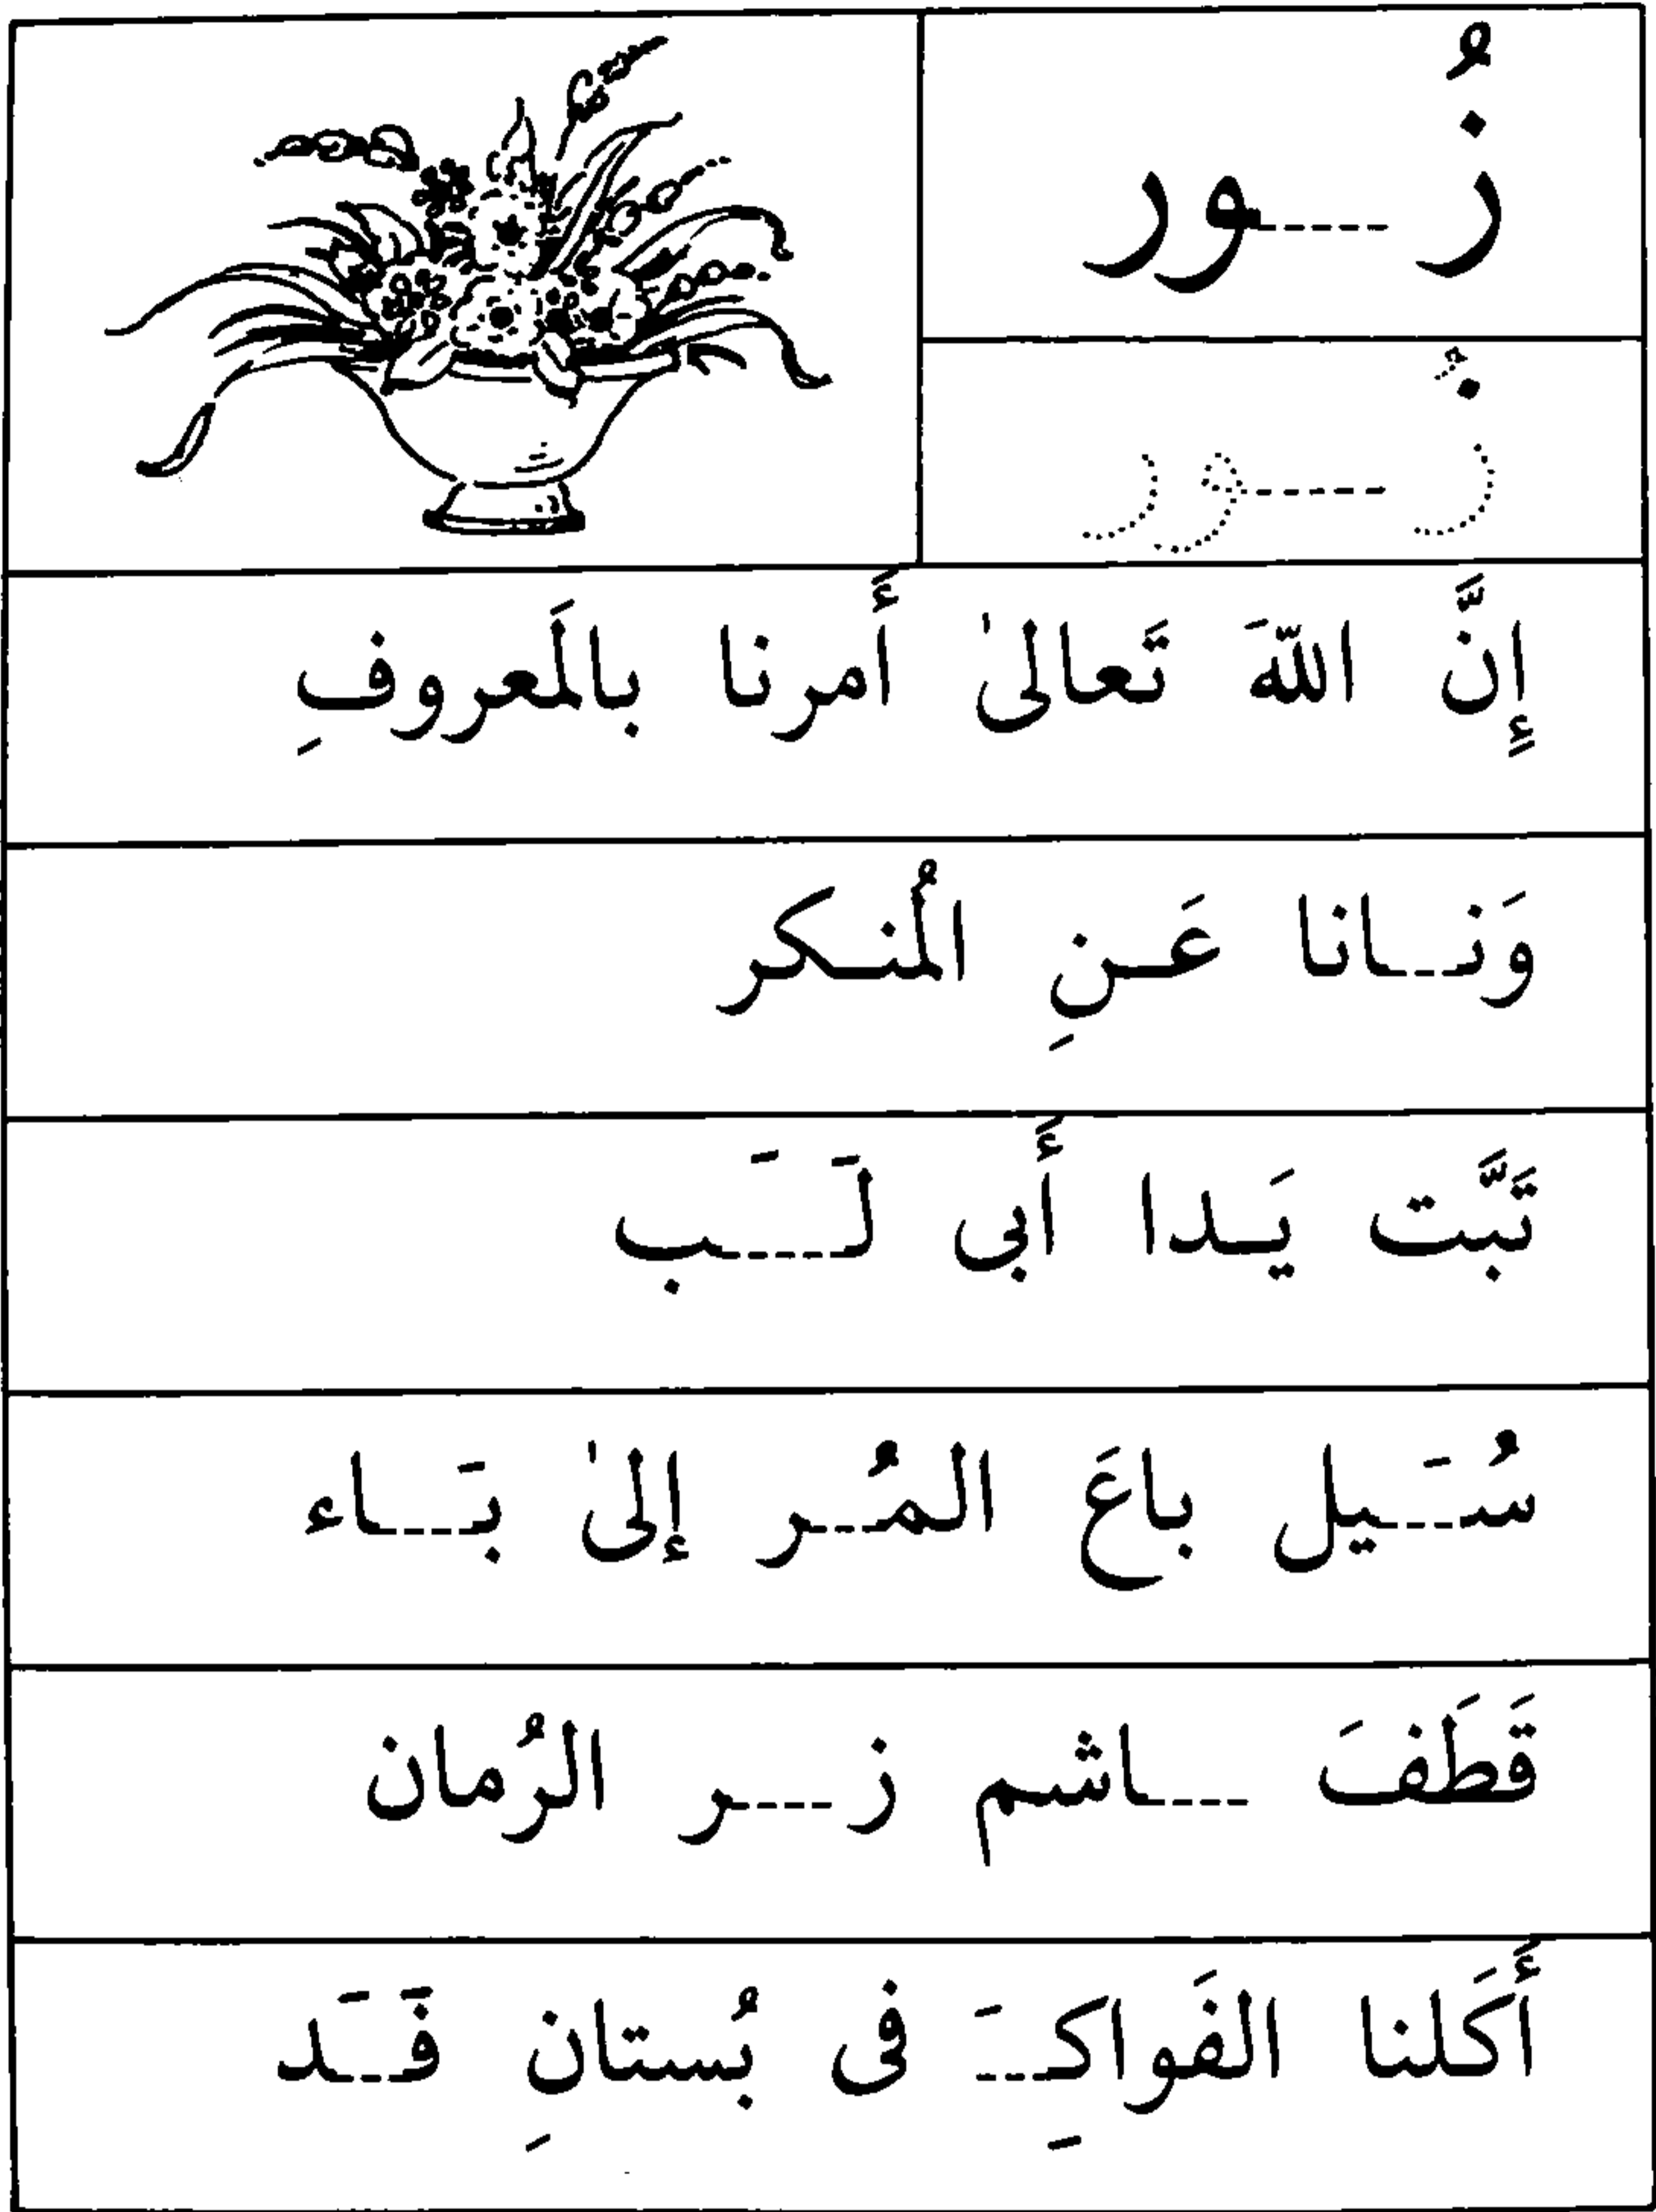 زُ----ـور
زُ----ـور
إِنَّ اللّهَ تَعالىٰ أَمرنا بالمَعروفِ
وَنـ--ـانا عَـنِ المُنـكر
تَبَّت يَـدا أَبي لَـ----ـَب
سُـ---ـَيل باعَ المُـ--ـر إلىٰ بَـ---ـاء
قَطَفَ ---ـاشم ز----ـر الرُمان
أَكَلنا الفَواكِـ--َ فى بُستانِ فَـ--ـَد